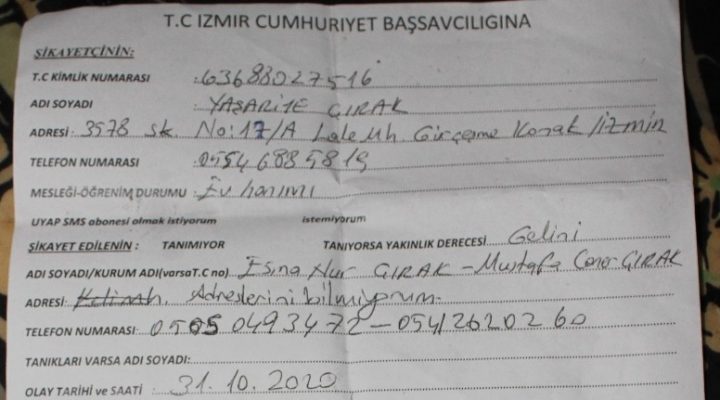 T.C IZMIR CUMHURIYET BAŞSAVCILIGINA
ŞİKAYETÇİNİN:
T.C KİMLİK NUMARASI :63688027516
ADI SOYADI :YAŞARİYE ÇIRAK
ADRESİ: 3578 sk No:17/A Lale Mh. Gürçeşme Konak/İzmir
TELEFON NUMARASI :0554 6885819
MESLEĞİ-ÖĞRENİM DURUMU : Ev hanımı
UYAP SMS abonesi olmak istiyorum istemiyorum
ŞİKAYET EDİLENİN : TANIMIYOR TANIYORSA YAKINLIK DERECESİ Gelini
ADI SOYADI/KURUM ADI(varsaT.C no) Esma Nur ÇIRAK - Mustafa Caner ÇIRAK
ADRESİ: Adreslerini bilmiyorum.
TELEFON NUMARASI: 0505 0493472-05412620260
TANIKLARI VARSA ADI SOYADI:
OLAY TARİHİ ve SAATİ : 31.10.2020